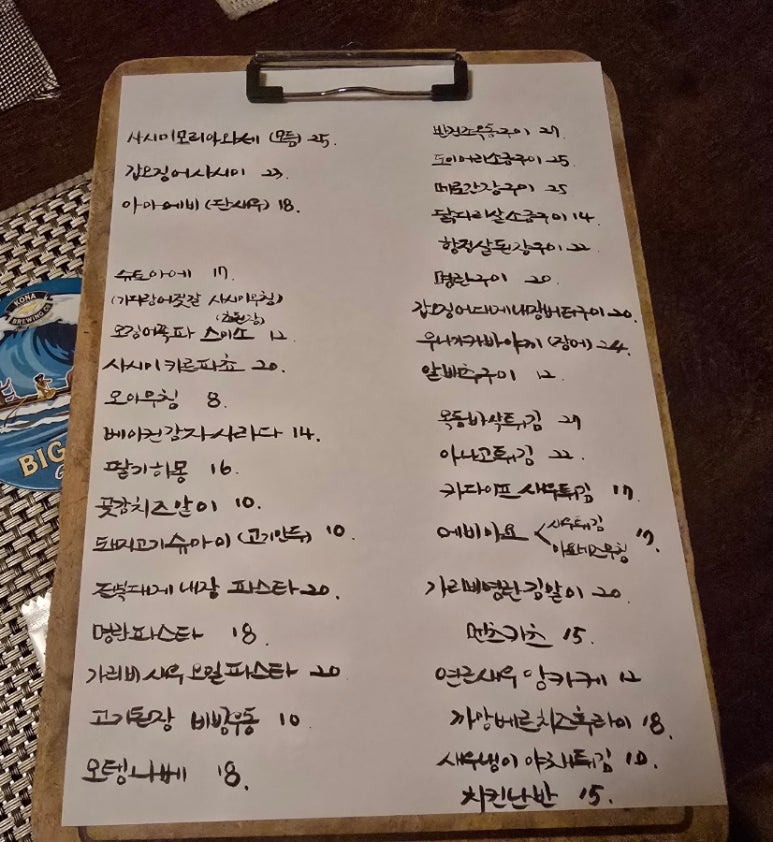 사시미모리아와세 (모듬) 25.
갑오징어사시미 23.
아마에비 (단새우) 18.
슈토아에 17.
(가다랑어젓갈 사시미무침)
(초된장)
오징어쪽파 스미소 12
사시미카르파쵸 20.
오이무침 8.
베이컨감자사라다 14.
딸기하몽 16.
곶감치즈말이 10.
돼지고기슈마이 (고기만두) 10.
전복대게 내장 파스타 20.
명란파스타 18.
가리비새우오일파스타 20
고기된장 비빔우동 10.
오뎅나베 18.
반건조옥돔구이 27.
도미머리소금구이 25.
메로간장구이 25
닭다리살소금구이 14.
항정살된장구이 22
명란구이 20.
갑오징어대게내장버터구이 20.
우나기카바야끼 (장어) 24.
알배추구이 12.
옥돔바삭튀김 27
아나고튀김 22.
카다이프 새우튀김 17.
에비마요 < 새우튀김 17.
마요네즈무침
가리비명란김말이 20.
멘츠카츠 15.
연근새우 앙카케 12
까망베르치즈후라이 18.
새우냉이 야채튀김 10.
치킨난반 15.
KONA
BREWING CO.
BIG